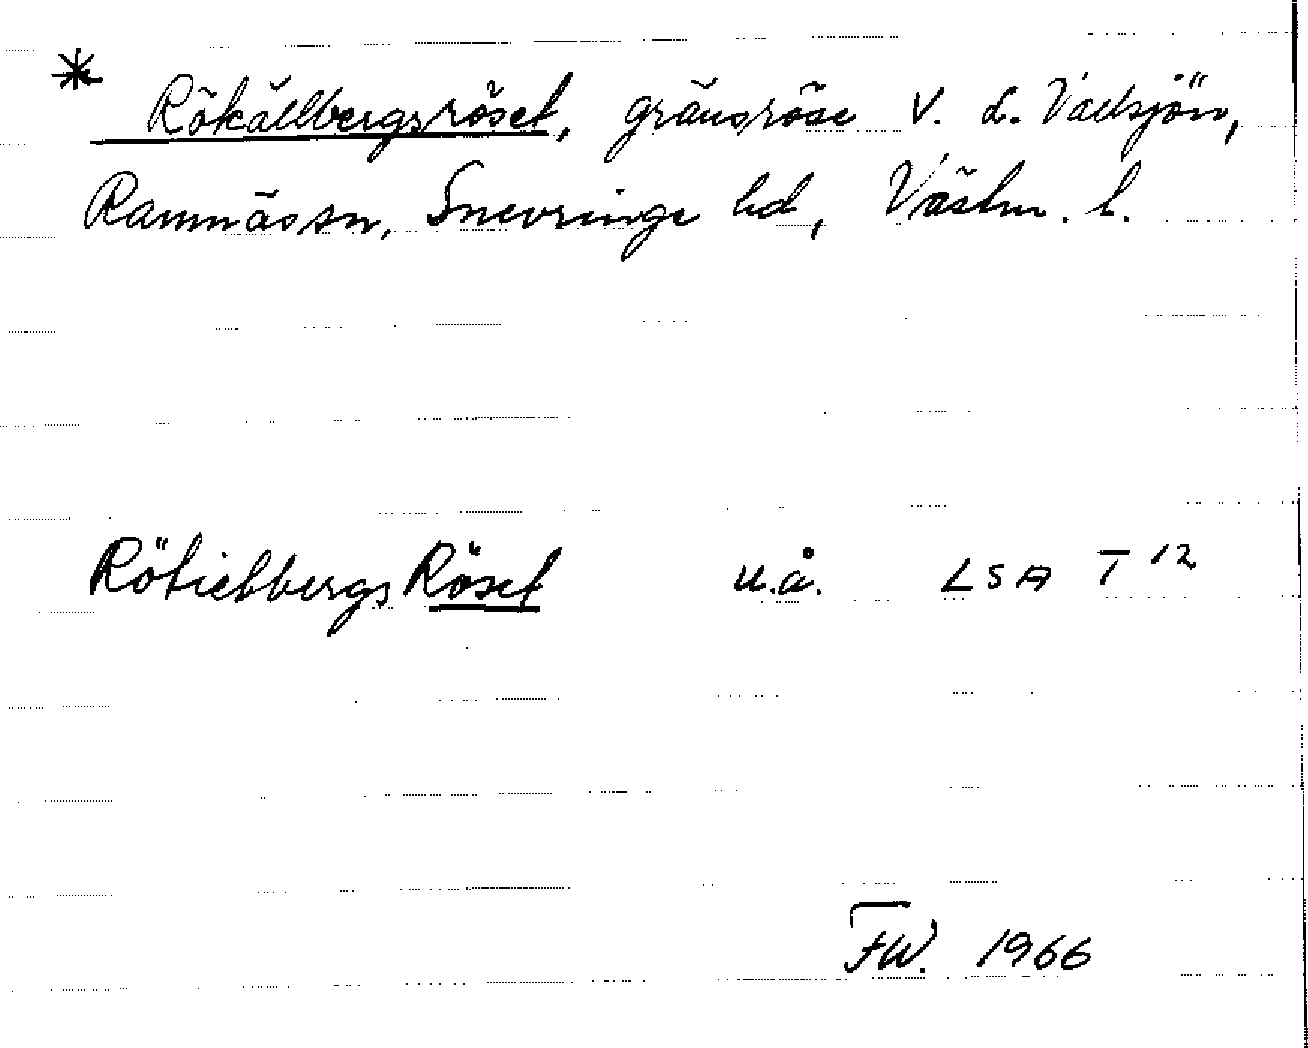 * Rökällbergsröset, gränsröse v. L. Vallsjön,
Ramnäs sn, Snevringe hd, Västm. l.
Rötielbergs Röset u.å. LSA T 12
FW. 1966